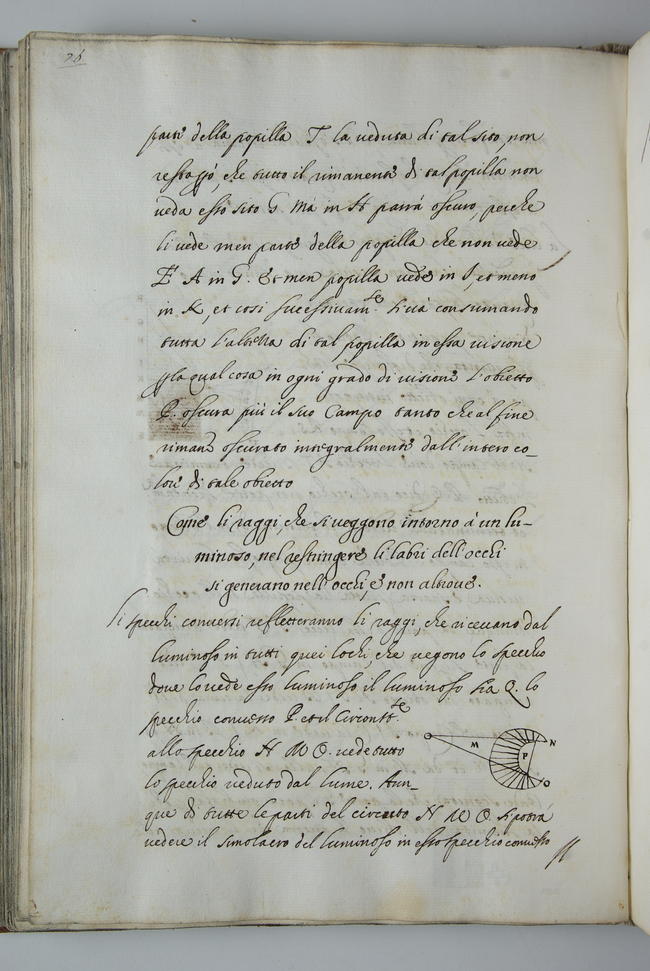 76
parti della popilla T la veduta di tal sito, non
restassi, che tutto il rimanente di tal popilla non
veda esso sito G. Mà in H parrà oscuro, perche
li vede men parte della popilla che non vede
A in G. Et men popilla vede in I, et meno
in K, et cosi successivam.te si và consumando
tutta l'altezza di tal popilla in essa visione
p la qual cosa in ogni grado di visione l'obietto
P. oscura più il suo Campo tanto che al fine
rimane oscurato integralmente dall'intero co_
lore di tale obietto
Come li raggi, che si veggono intorno à un lu-
minoso, nel restringere li labri dell'occhi
si generano nell'occhi, e non altrove.
Li specchi conversi refletteranno li raggi, che ricevano dal
luminoso in tutti quei lochi, che vegono lo specchio
dove lo vede esso luminoso il luminoso sia Q. lo
specchio converso P. et il Circonst.te
allo specchio N M O. vede tutto
lo specchio veduto dal lume. Aun_
que di tutte le parti del circuito N M O si potrà
vedere il simolacro del luminoso in esso specchio converso
M
N
P
O